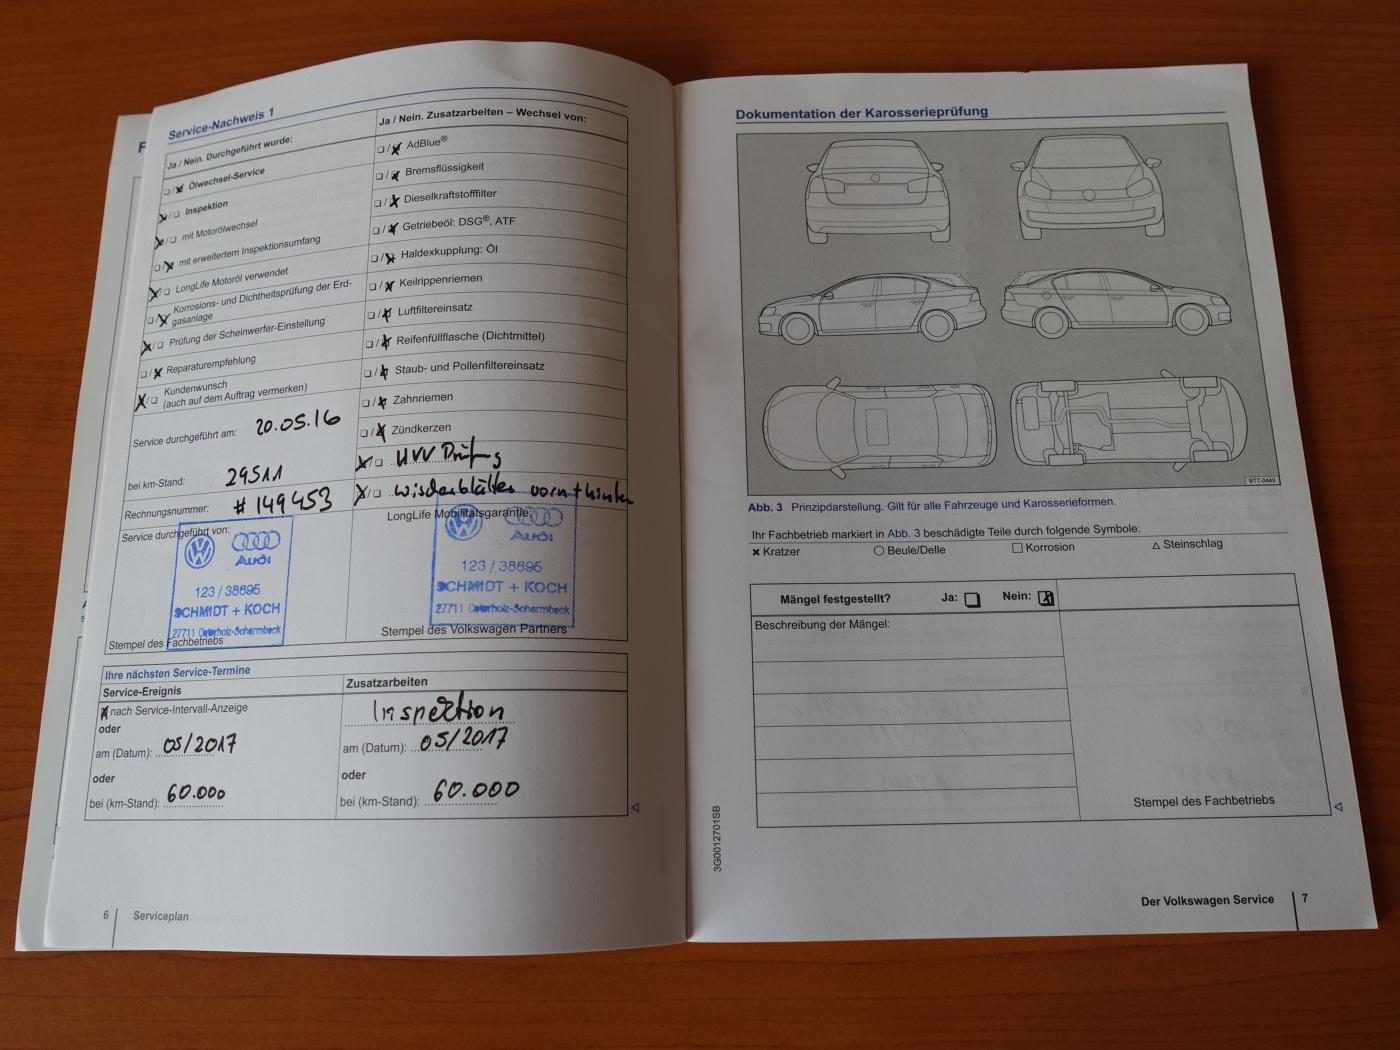 Service-Nachweis 1
Ja / Nein. Durchgeführt wurde:
❏ / ✗ Ölwechsel-Service
✗ / ❏ Inspektion
✗ / ❏ mit Motorölwechsel
❏ / ✗ mit erweitertem Inspektionsumfang
✗ / ❏ LongLife Motoröl verwendet
❏ / ✗ Korrosions- und Dichtheitsprüfung der Erd-
gasanlage
✗ / ❏ Prüfung der Scheinwerfer-Einstellung
❏ / ✗ Reparaturempfehlung
✗ / ❏ Kundenwunsch
(auch auf dem Auftrag vermerken)
Service durchgeführt am: 20.05.16
bei km-Stand: 29511
Rechnungsnummer: #149453
Service durchgeführt von:
Audi
123 / 38695
SCHMIDT + KOCH
27711 Osterholz-Scharmbeck
Stempel des Fachbetriebs
Ja / Nein. Zusatzarbeiten – Wechsel von:
❏ / ✗ AdBlue®
❏ / ✗ Bremsflüssigkeit
❏ / ✗ Dieselkraftstofffilter
❏ / ✗ Getriebeöl: DSG®, ATF
❏ / ✗ Haldexkupplung: Öl
❏ / ✗ Keilrippenriemen
❏ / ✗ Luftfiltereinsatz
❏ / ✗ Reifenfüllflasche (Dichtmittel)
❏ / ✗ Staub- und Pollenfiltereinsatz
❏ / ✗ Zahnriemen
❏ / ✗ Zündkerzen
✗ / ❏ Prüfung
✗ / ❏ wischerblätter vorn + hinten
LongLife Mobilitätsgarantie:
Audi
123 / 38695
SCHMIDT + KOCH
27711 Osterholz-Scharmbeck
Stempel des Volkswagen Partners
Ihre nächsten Service-Termine
Service-Ereignis
✗ nach Service-Intervall-Anzeige
oder
am (Datum): 05/2017
oder
bei (km-Stand): 60.000
Zusatzarbeiten
Inspektion
am (Datum): 05/2017
oder
bei (km-Stand): 60.000
6 Serviceplan
Dokumentation der Karosserieprüfung
BTT-0449
Abb. 3 Prinzipdarstellung. Gilt für alle Fahrzeuge und Karosserieformen.
Ihr Fachbetrieb markiert in Abb. 3 beschädigte Teile durch folgende Symbole:
✗ Kratzer ○ Beule/Delle □ Korrosion △ Steinschlag
Mängel festgestellt? Ja: ❏ Nein: ☒
Beschreibung der Mängel:
Stempel des Fachbetriebs
3G0012701SB
Der Volkswagen Service 7